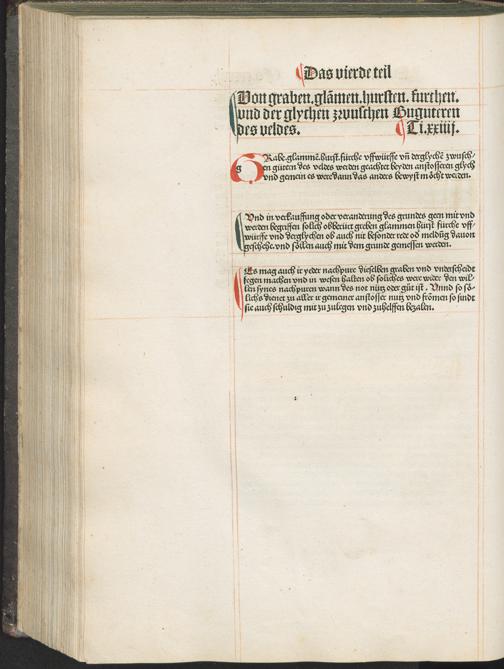 Das vierde teil
Von graben. glam̄en. hursten. furchen.
vnd der glychen zwuschen Buguteren
des veldes. Ti. xxiiij.
GRabe. glammē. hurst. fürche vffwürffe vn̄ derglychē zwusch-
en gütern des veldes werden geachtet beyden anstosseren glych
vnd gemein es were dann das anders bewyst möcht werden.
Vnd in verkauffung oder veranderung des grundes geen mit vnd
werden begriffen solich obberürt greben glammen hurst fürche vff-
würffe vnd derglychen ob auch nit besonder rede od meldūg dauon
geschehe. vnd söllen auch mit dem grunde gemessen werden.
Es mag auch ir yeder nachpure dieselben graben vnd vnderscheidt
fegen machen vnd in wesen halten ob soliches were wider den wil-
len synes nachpuren wann des not nütz oder güt ist. Vnnd so sö-
lichs dienet zu aller ir gemeiner anstösser nutz vnd frömen so sindt
sie auch schuldig mit zu zulegen vnd zuhelffen bezalen.